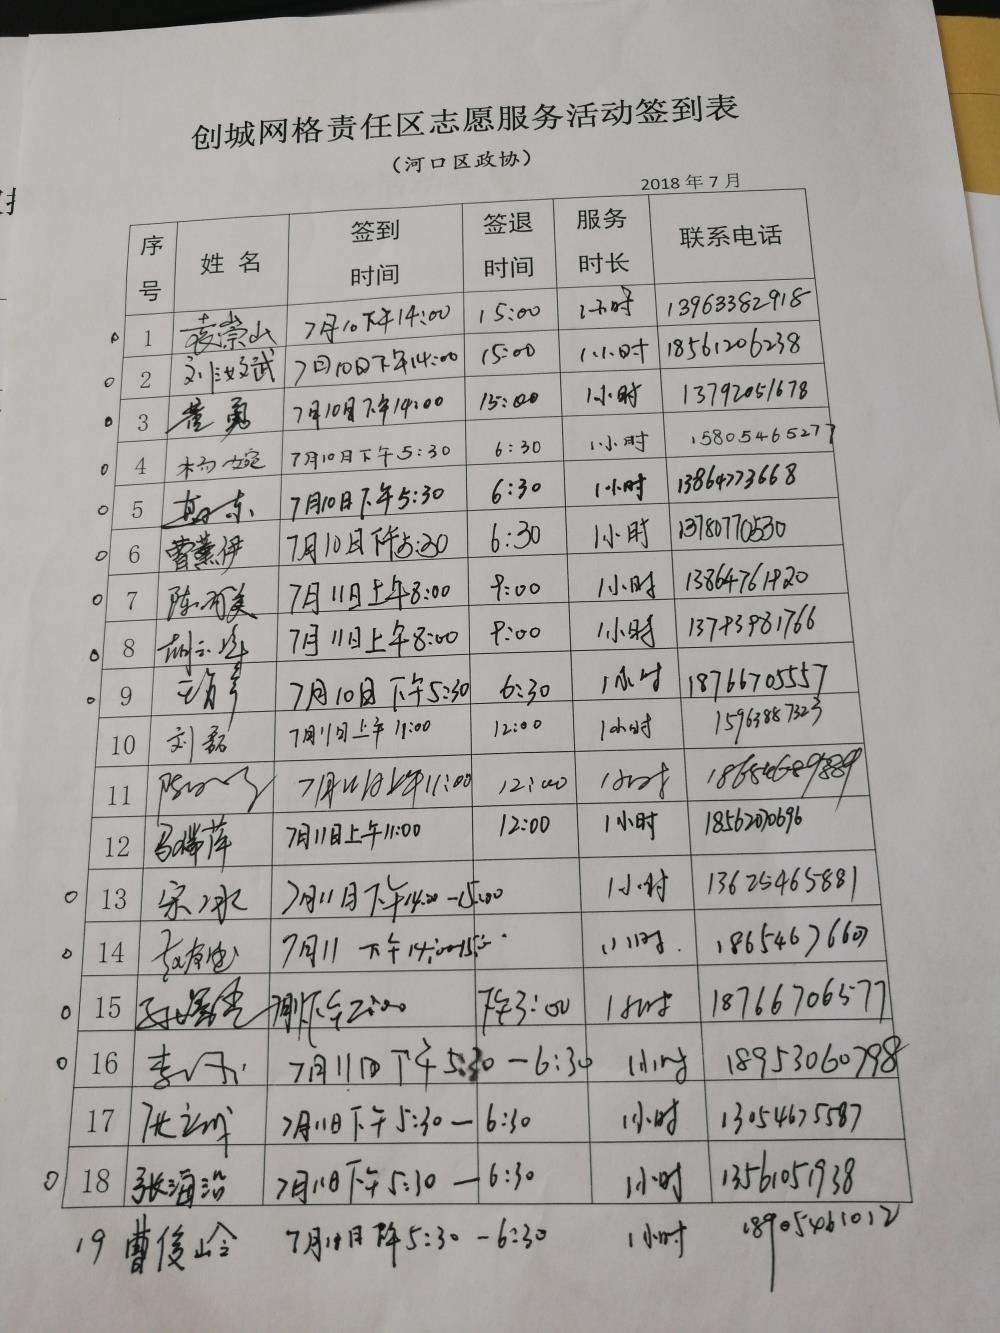 创城网格责任区志愿服务活动签到表
（河口区政协）
2018 年 7 月
序号 姓 名 签到时间 签退时间 服务时长 联系电话
1 袁崇山 7月10下午14:00 15:00 1小时 13963382918
2 刘汝武 7月10日下午14:00 15:00 1小时 18561206238
3 董勇 7月10日下午14:00 15:00 1小时 13792051678
4 杨婉 7月10日下午5:30 6:30 1小时 15805465277
5 7月10日下午5:30 6:30 1小时 13864773668
6 曹燕伊 7月10日下午5:30 6:30 1小时 13780770530
7 7月11日上午8:00 9:00 1小时
8 7月11日上午8:00 9:00 1小时
9 7月10日下午5:30 6:30 1小时 18766705557
10 刘磊 7月11日上午11:00 12:00 1小时 15963887323
11 7月11日上午11:00 12:00 1小时
12 马瑞萍 7月11日上午11:00 12:00 1小时 18562070696
13 宋冰 7月11日下午14:00-15:00 1小时 13625465881
14 7月11 下午14:00-15:0 1小时. 18654676607
15 下午2:00 下午3:00 1小时 18766706577
16 李丹 7月11日下午5:30-6:30 1小时 18953060798
17 7月11日下午5:30-6:30 1小时 13054675587
18 张海沿 7月11日下午5:30-6:30 1小时 13561051938
19 曹俊岭 7月11日下午5:30-6:30 1小时 18905461012